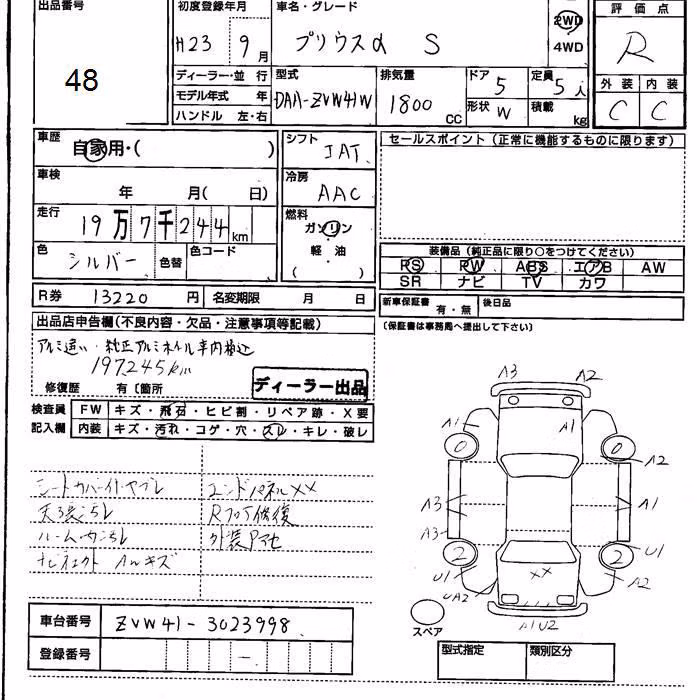 出品番号
48
初度登録年月
H23 9 月
車名・グレード
プリウスα S
2WD
4WD
評価点
R
外装 内装
C C
ディーラー・並行
モデル年式 年
ハンドル 左・右
型式
DAA-ZVW41W
排気量
1800 CC
ドア 5
形状 W
定員 5 人
積載 kg
車歴
自家用・( )
車検
年 月( 日)
走行
19万7千244 km
色
シルバー
色替
色コード
シフト
IAT
冷房
AAC
燃料
ガソリン
軽・油
( )
セールスポイント(正常に機能するものに限ります)
装備品(純正品に限り○をつけてください)
PS PW ABS エアB AW
SR ナビ TV カワ
R券 13220 円
名変期限 月 日
新車保証書 有・無
後日品
(保証書は事務局へ提出して下さい)
出品店申告欄(不良内容・欠品・注意事項等記載)
アルミ違い・純正アルミホイル車内積込
197245km
修復歴 有〔箇所
ディーラー出品
検査員
記入欄
FW キズ・飛石・ヒビ割・リペア跡・X要
内装 キズ・汚れ・コゲ・穴・スレ・キレ・破レ
シートカバー付・ヤブレ
エンドパネルXX
天張ヨゴレ
Rフロア修復
外装Pマセ
キズ
A3
A2
A1
A1
0
0
A2
A3
A1
A3
2
2
U1
U1
A2
UA2
XX
A1U2
スペア
車台番号 ZVW41-3023998
登録番号 －
型式指定
類別区分